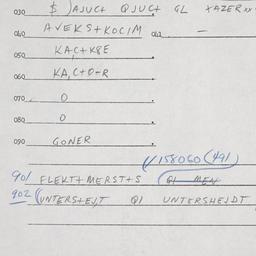 030 $ )AJUC+ QJUC+ GL XAZER XX
040 AVEKS+KOCIM 041 —
050 KAC+K8E
060 KA,C+O+R
070 O
080 O
090 GONER
√158060 (491)
901 FLEKT+MERST+S
902 (UNTERS+EJ,T QI UNTERSHEJDT